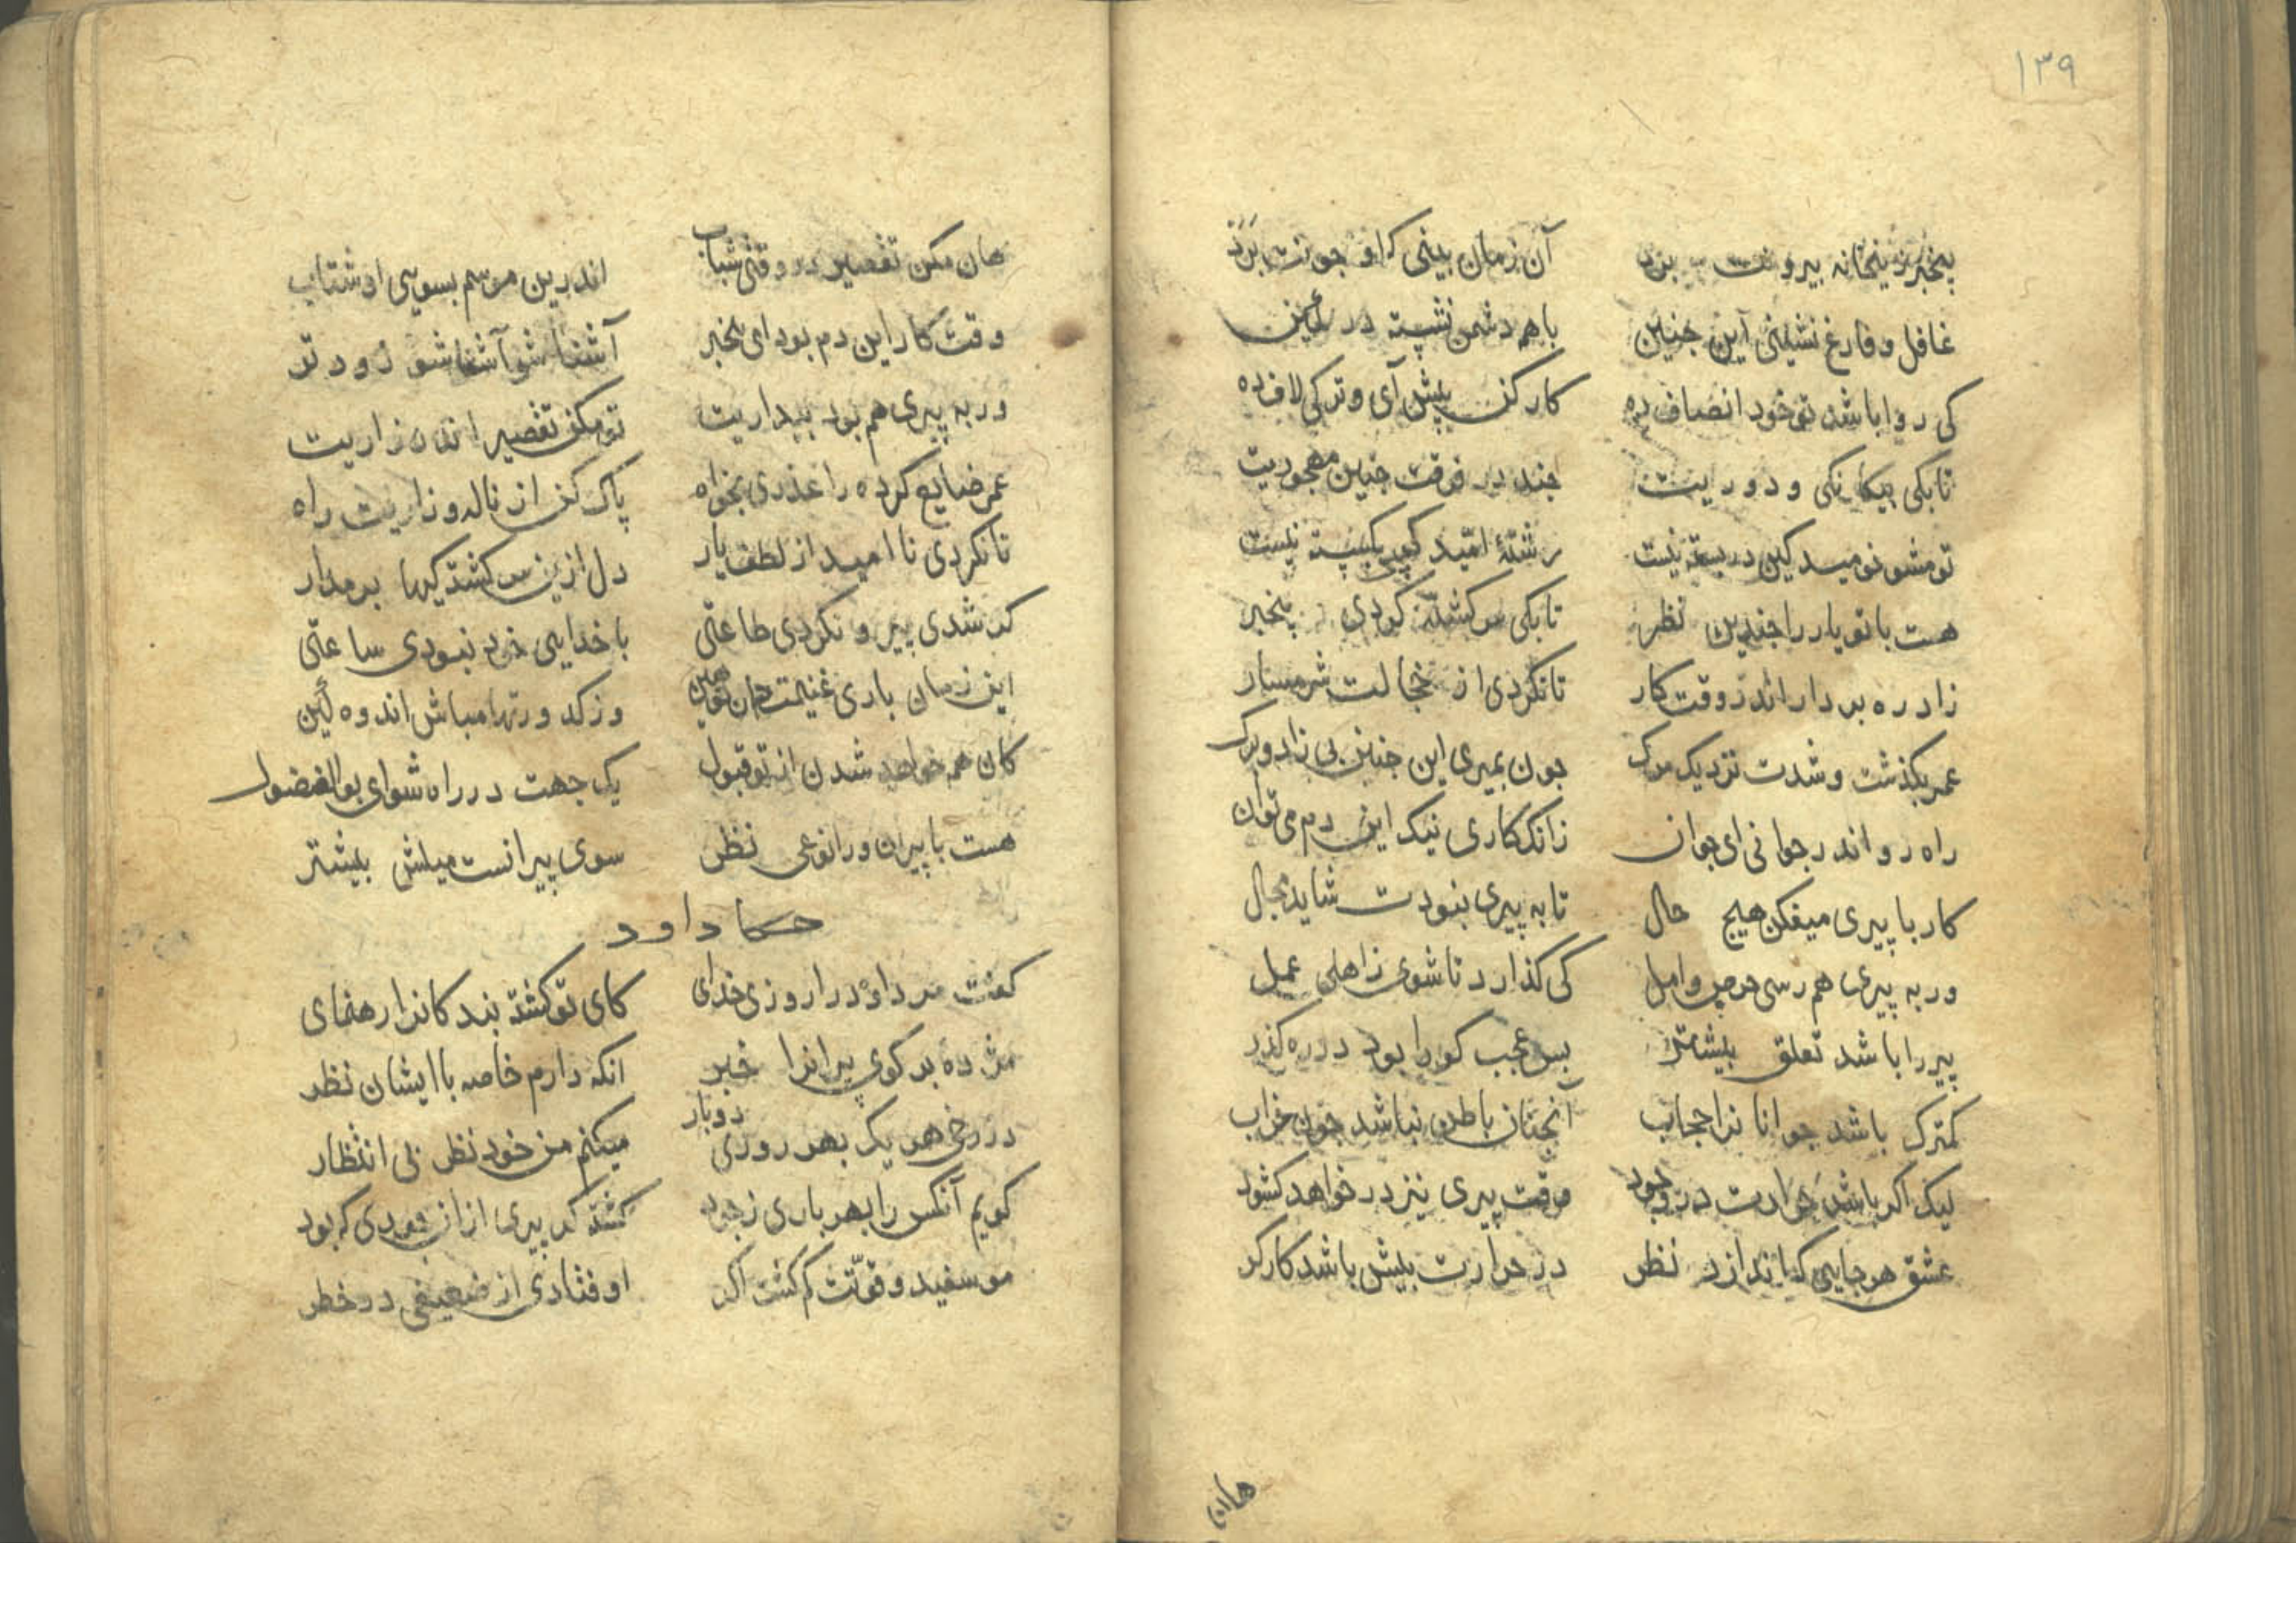 ۱۳۹
بیخبر زینخانه بیرونت برد آن زمان بینی که او چونت برد
غافل و فارغ نشینی این جنین با هم دشمن نشسته در کمین
کی روا باشد تو خود انصاف ده کار کن پیش آی و ترکی لاف ده
تا بکی بیکانکی و دوریت جند در فرقت جنین مهجوریت
تو مشو نومید کین در بسته نیست رشتهٔ امّید کس بکسسته نیست
هست با تو یار را جندین نظر تا بکی سرکشته کردی بیخبر
زاد ره بردار اندر وقت کار تا نکردی از خجالت شرمسار
عمر بکذشت و شدت نزدیک مرک جون بمیری این جنین بی زاد و برک
راه رو اندر جوانی ای جوان زانک کاری نیک این دم می توان
کار با پیری میفکن هیج حال تا به پیری نبودت شاید مجال
ور به پیری هم رسی حرص و امل کی کذارد تا شوی ز اهل عمل
پیر را باشد تعلق بیشتر بس عجب کو را بود در ره کذر
کمترک باشد جوانانرا حجاب آنجنان باطن نباشد جون خراب
لیک اکر باشد حرارت در وجود وقت پیری نیز در خواهد کشود
عشق هر جایی که اندازد نظر در حرارت بیش باشد کارکر
هان
هان مکن تقصیر در وقتی شباب اندرین موسم بسوی او شتاب
وقت کار این دم بود ای بیخبر آشنا شو آشنا شو زودتر
ور به پیری هم بود بیداریت تو مکن تقصیر اندر زاریت
عمر ضایع کرده را عذری بخواه پاک کن از ناله و زاریت راه
تا نکردی نا امید از لطف یار دل ازین سرکشتکیها برمدار
که شدی پیر و نکردی طاعتی با خدایی خود نبودی ساعتی
این زمان باری غنیمت دان تو همین وز کدورتها مباش اندوه کین
کان هم خواهد شدن از تو قبول یک جهت در راه شو ای بوالفضول
هست با پیران ورا نوعی نظر سوی پیرانست میلش بیشتر
حکا داود
کفت مر داود را روزی خدای کای تو کشته بندکانرا رهنمای
مژده بر کوی پیرانرا خبر انکه دارم خاصه با ایشان نظر
در رخ هر یک بهر روزی دو بار میکنم من خود نظر بی انتظار
کویم آنکس را بهر باری ز جود کشته کم پیری از آن جودی که بود
مو سفید و قوّتت کم کشت اکر اوفتادی از ضعیفی در خطر